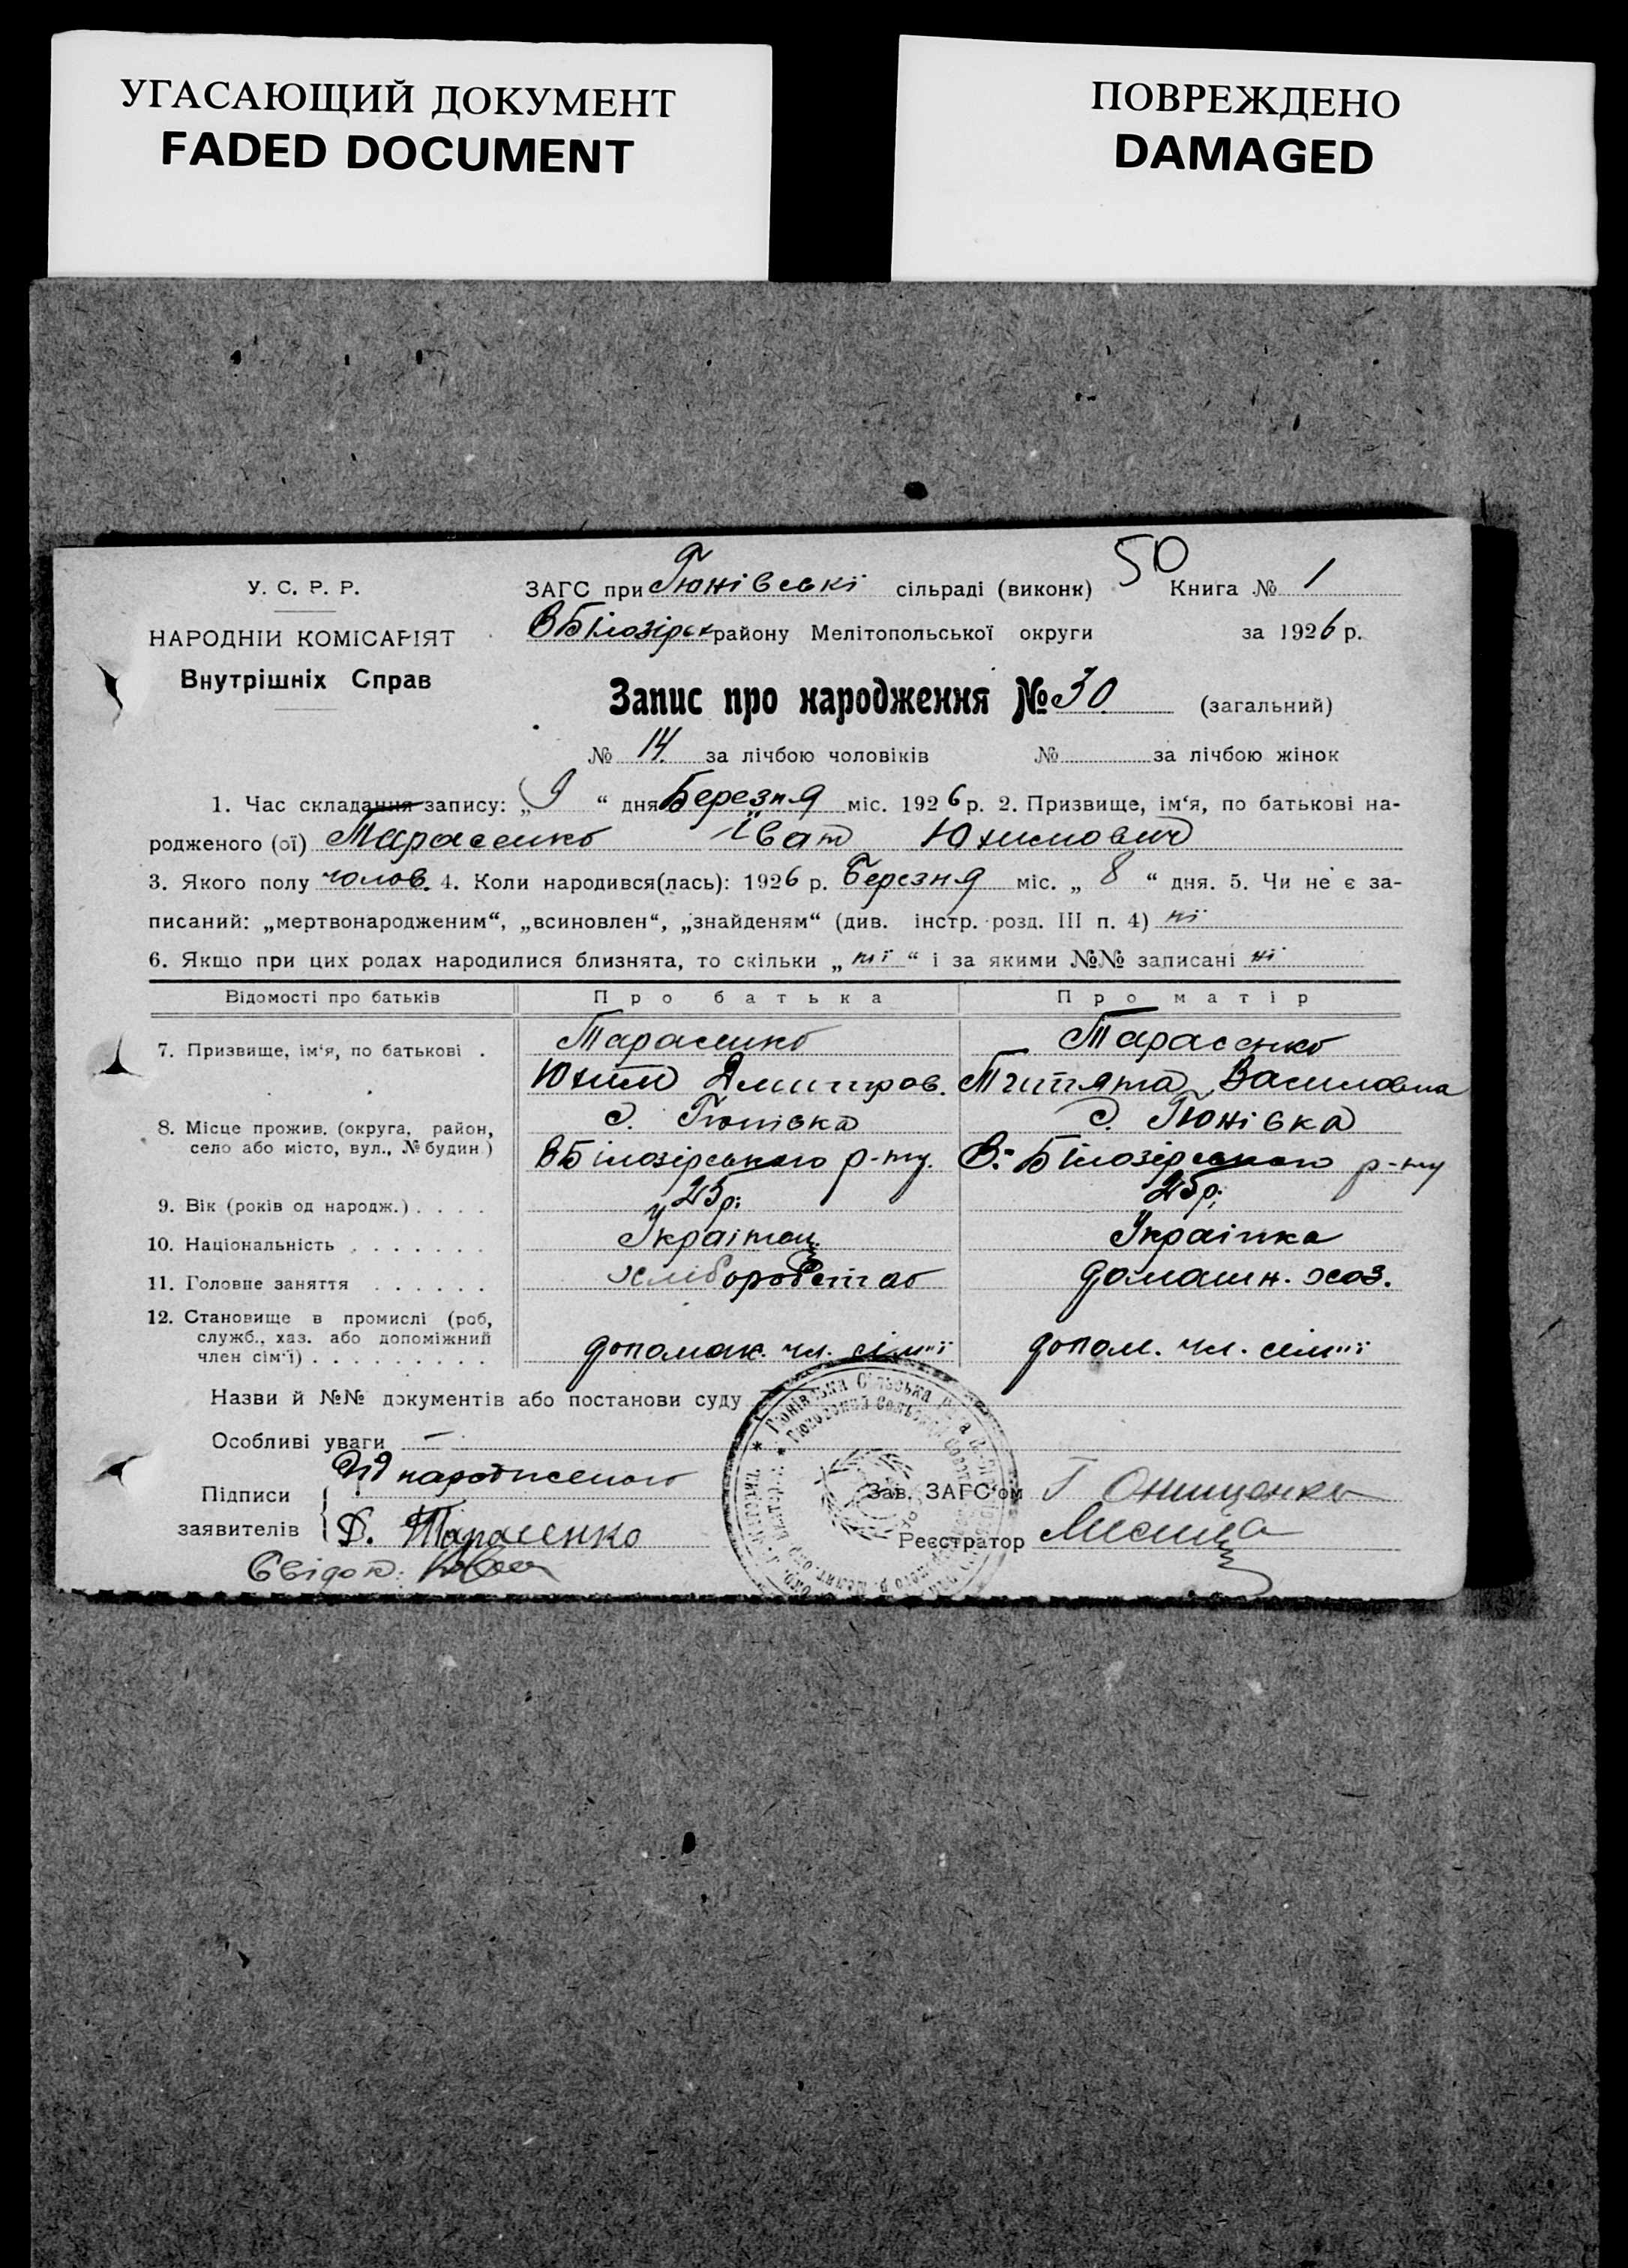 УГАСАЮЩИЙ ДОКУМЕНТ
FADED DOCUMENT
ПОВРЕЖДЕНО
DAMAGED
У. С. Р. Р.
НАРОДНІЙ КОМІСАРІЯТ
Внутрішніх Справ
ЗАГС при Гюнівські сільраді (виконк) 50 Книга № 1
ВБілозірськ району Мелітопольської округи за 1926 р.
Запис про народження № 30 (загальний)
№ 14. за лічбою чоловіків № за лічбою жінок
1. Час складання запису: „ 9 “ дня Березня міс. 1926 р. 2. Призвище, ім‘я, по батькові на-
родженого (ої) Тарасенко Іван Юхимович
3. Якого полу чолов. 4. Коли народився(лась): 1926 р. Березня міс. „ 8 “ дня. 5. Чи не є за-
писаний: „мертвонародженим“, „всиновлен“, „знайденям“ (див. інстр. розд. III п. 4) ні
6. Якщо при цих родах народилися близнята, то скільки „ ні “ і за якими №№ записані ні
Відомості про батьків Про батька Про матір
7. Призвище, ім‘я, по батькові . Тарасенко Тарасенко
Юхим Дмитров. Титяна Василовна
8. Місце прожив. (округа, район, с. Гюнівка с. Гюнівка
село або місто, вул., № будин.) ВБілозірського р-ну. В.-Білозірського р-ну
9. Вік (років од народж.) . . . . 25р. 25р.
10. Національність . . . . . . . Українец Українка
11. Головне заняття . . . . . . хлібороб домашн. хоз.
12. Становище в промислі (роб,
служб., хаз. або допоміжний
член сім‘ї) . . . . . . . . . допомож. чл. сім"ї допом. чл. сім"ї
Назви й №№ документів або постанови суду —
Особливі уваги —
Підписи
заявителів
Дід народженого
Д. Тарасенко
Свідок:
Зав. ЗАГС‘ом Г Онищенко
Реєстратор Лисица
Гюнівська Сільська Рада